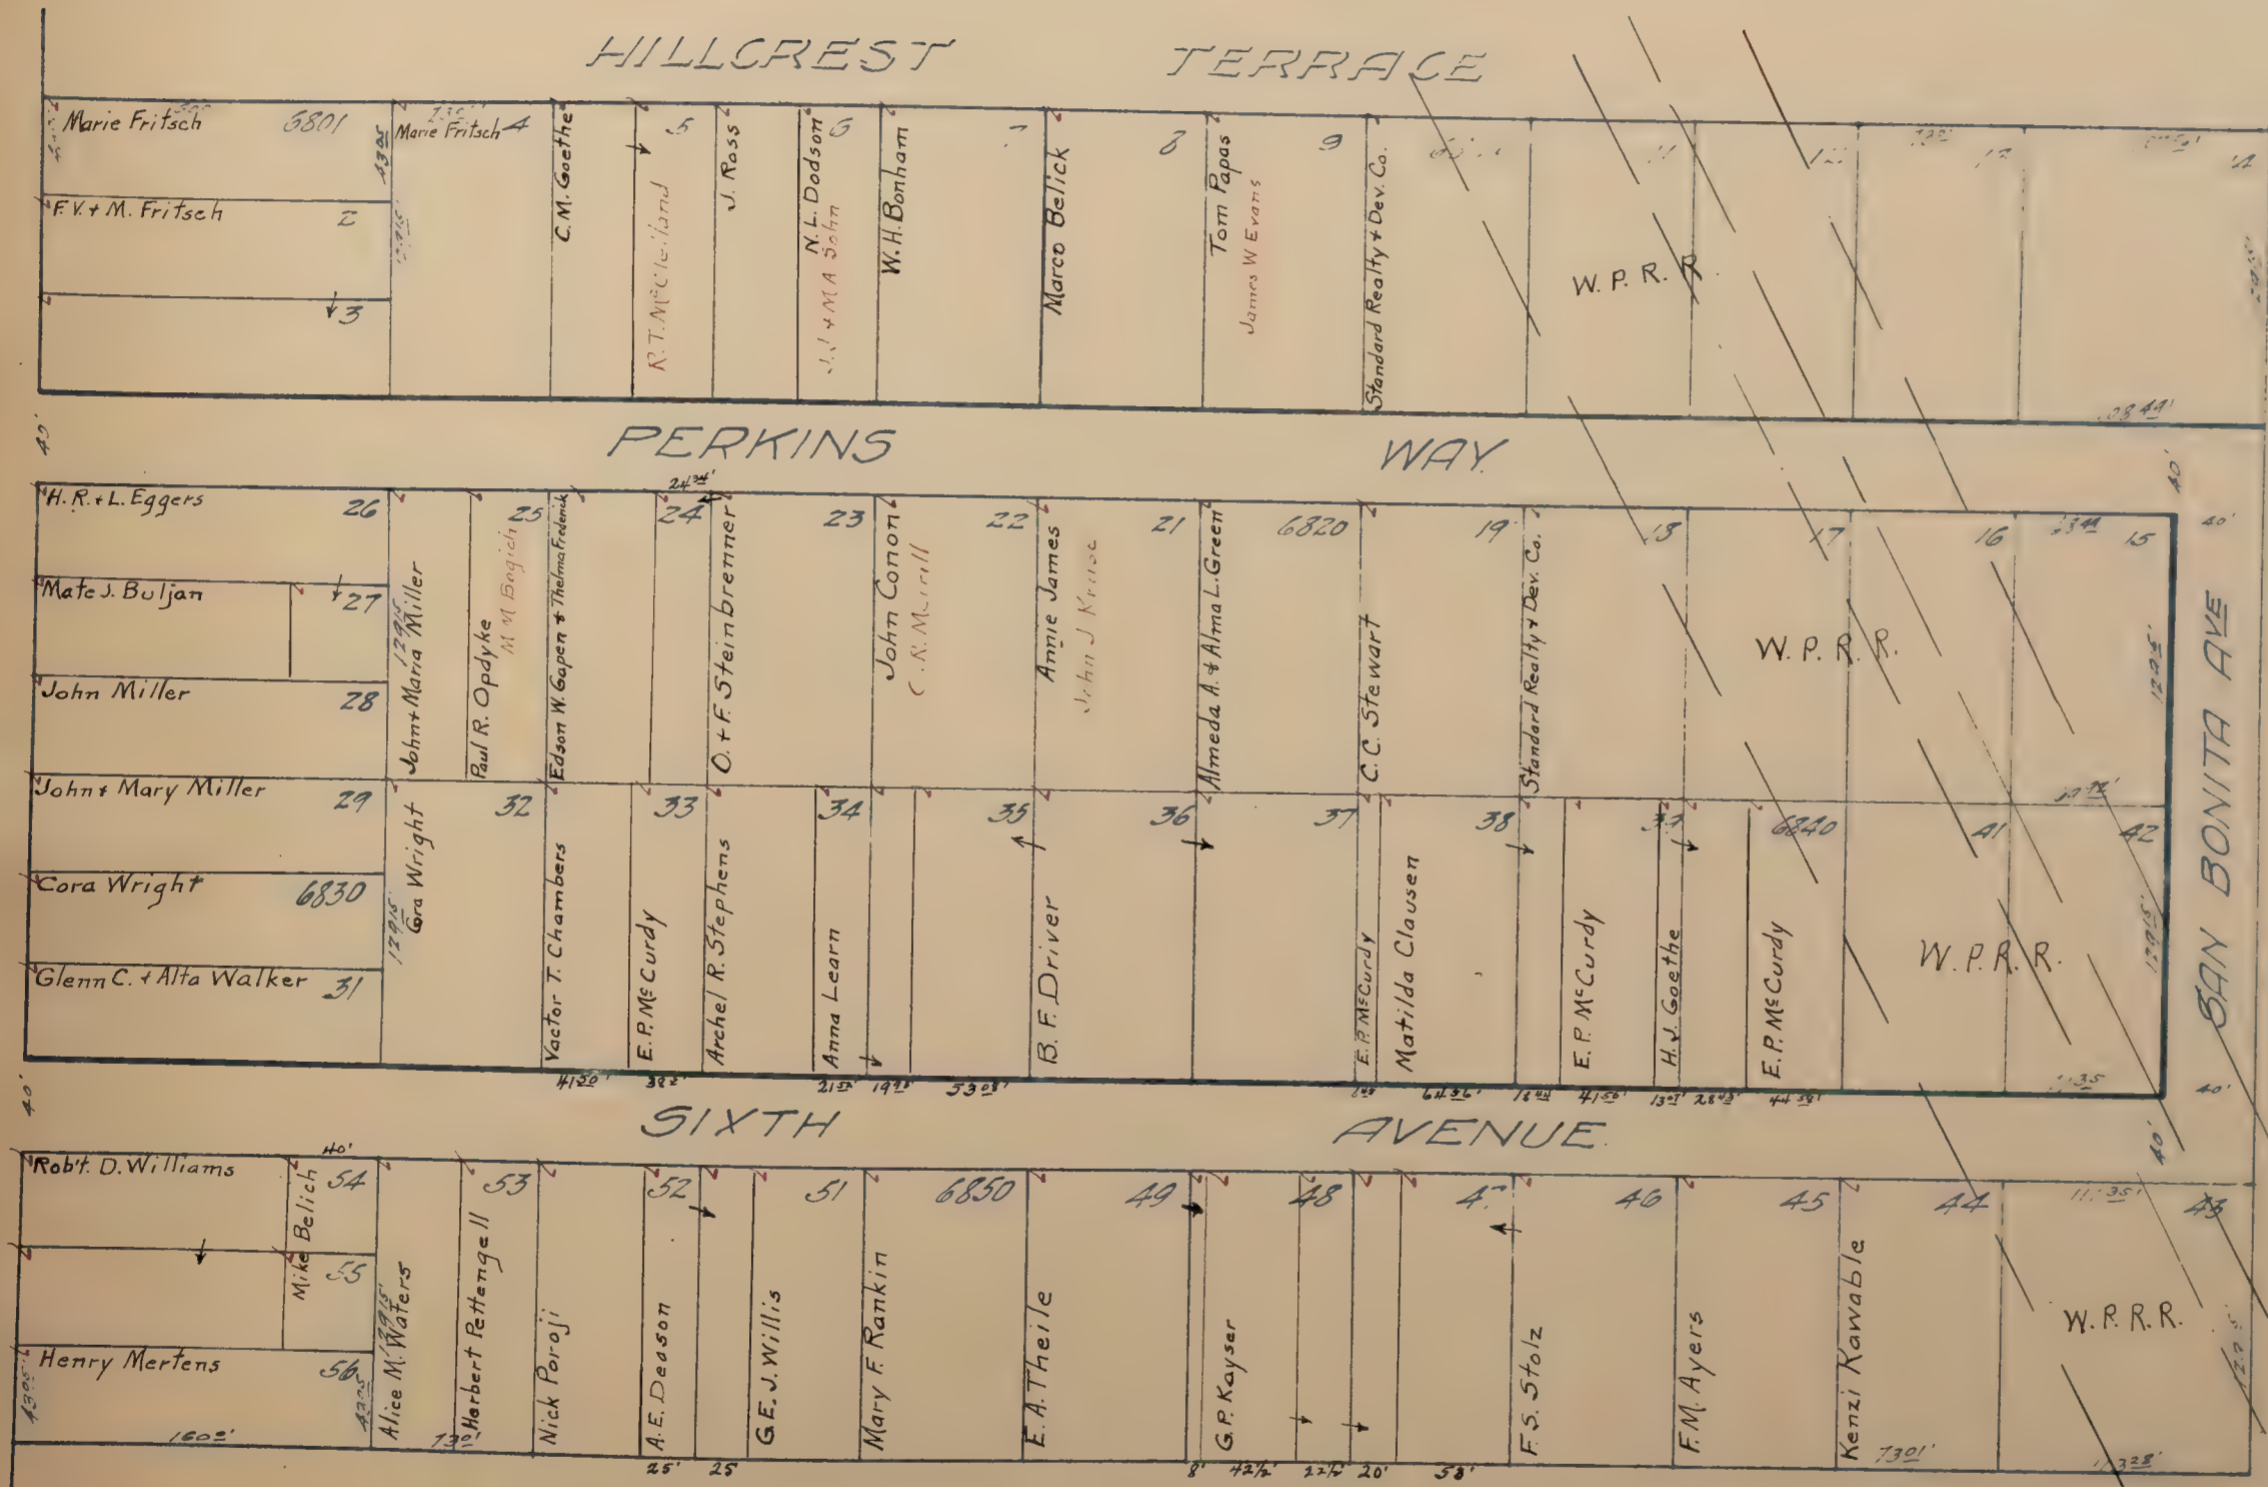 HILLCREST TERRACE
Marie Fritsch 6801
43 05
Marie Fritsch 4
C.M. Goethe
5
R.T. McClelland
J. Ross
N.L. Dodson 6
J.J + M A Sohn
W.H. Bonham
7
Marco Belick
8
Tom Papas
James W Evans
9
Standard Realty + Dev. Co.
W. P. R. R.
F.V. + M. Fritsch 2
3
40'
PERKINS WAY
40'
H.R. + L. Eggers 26
Mate J. Buljan 27
John Miller 28
John + Mary Miller 29
Cora Wright 6830
Glenn C. + Alta Walker 31
129 15
John + Maria Miller
Paul R. Opdyke
25
M M Bogich
Edson W. Gapen + Thelma Frederick
24 34'
24
O. + F. Steinbrenner
23
John Conon
C.R. Merrill
22
Annie James
John J Kruse
21
Almeda A. + Alma L. Green
6820
C.C. Stewart
19
Standard Realty + Dev. Co.
18
17
16
15
W. P. R. R.
40'
SAN BONITA AVE
129 15
Cora Wright
32
Vactor T. Chambers
E.P. McCurdy
33
Archel R. Stephens
Anna Learn
34
35
B. F. Driver
36
37
E.P. McCurdy
Matilda Clausen
38
E.P. McCurdy
39
H.J. Goethe
E.P. McCurdy
6840
41
42
W.P.R.R.
129 15'
40'
40'
SIXTH AVENUE
40'
Rob't. D. Williams
40'
54
Mike Belich
55
Henry Mertens 56
43 05'
160 0'
129 15'
Alice M. Waters
73 01'
Herbert Pettengell
53
Nick Poroji
A.E. Deason
52
G.E.J. Willis
51
Mary F. Rankin
6850
E.A. Theile
49
G.P. Kayser
48
47
F.S. Stolz
46
F.M. Ayers
45
Kenzi Kawable
44
73 01'
43
W.P.R.R.
25' 25
8' 42½' 22½' 20' 58'